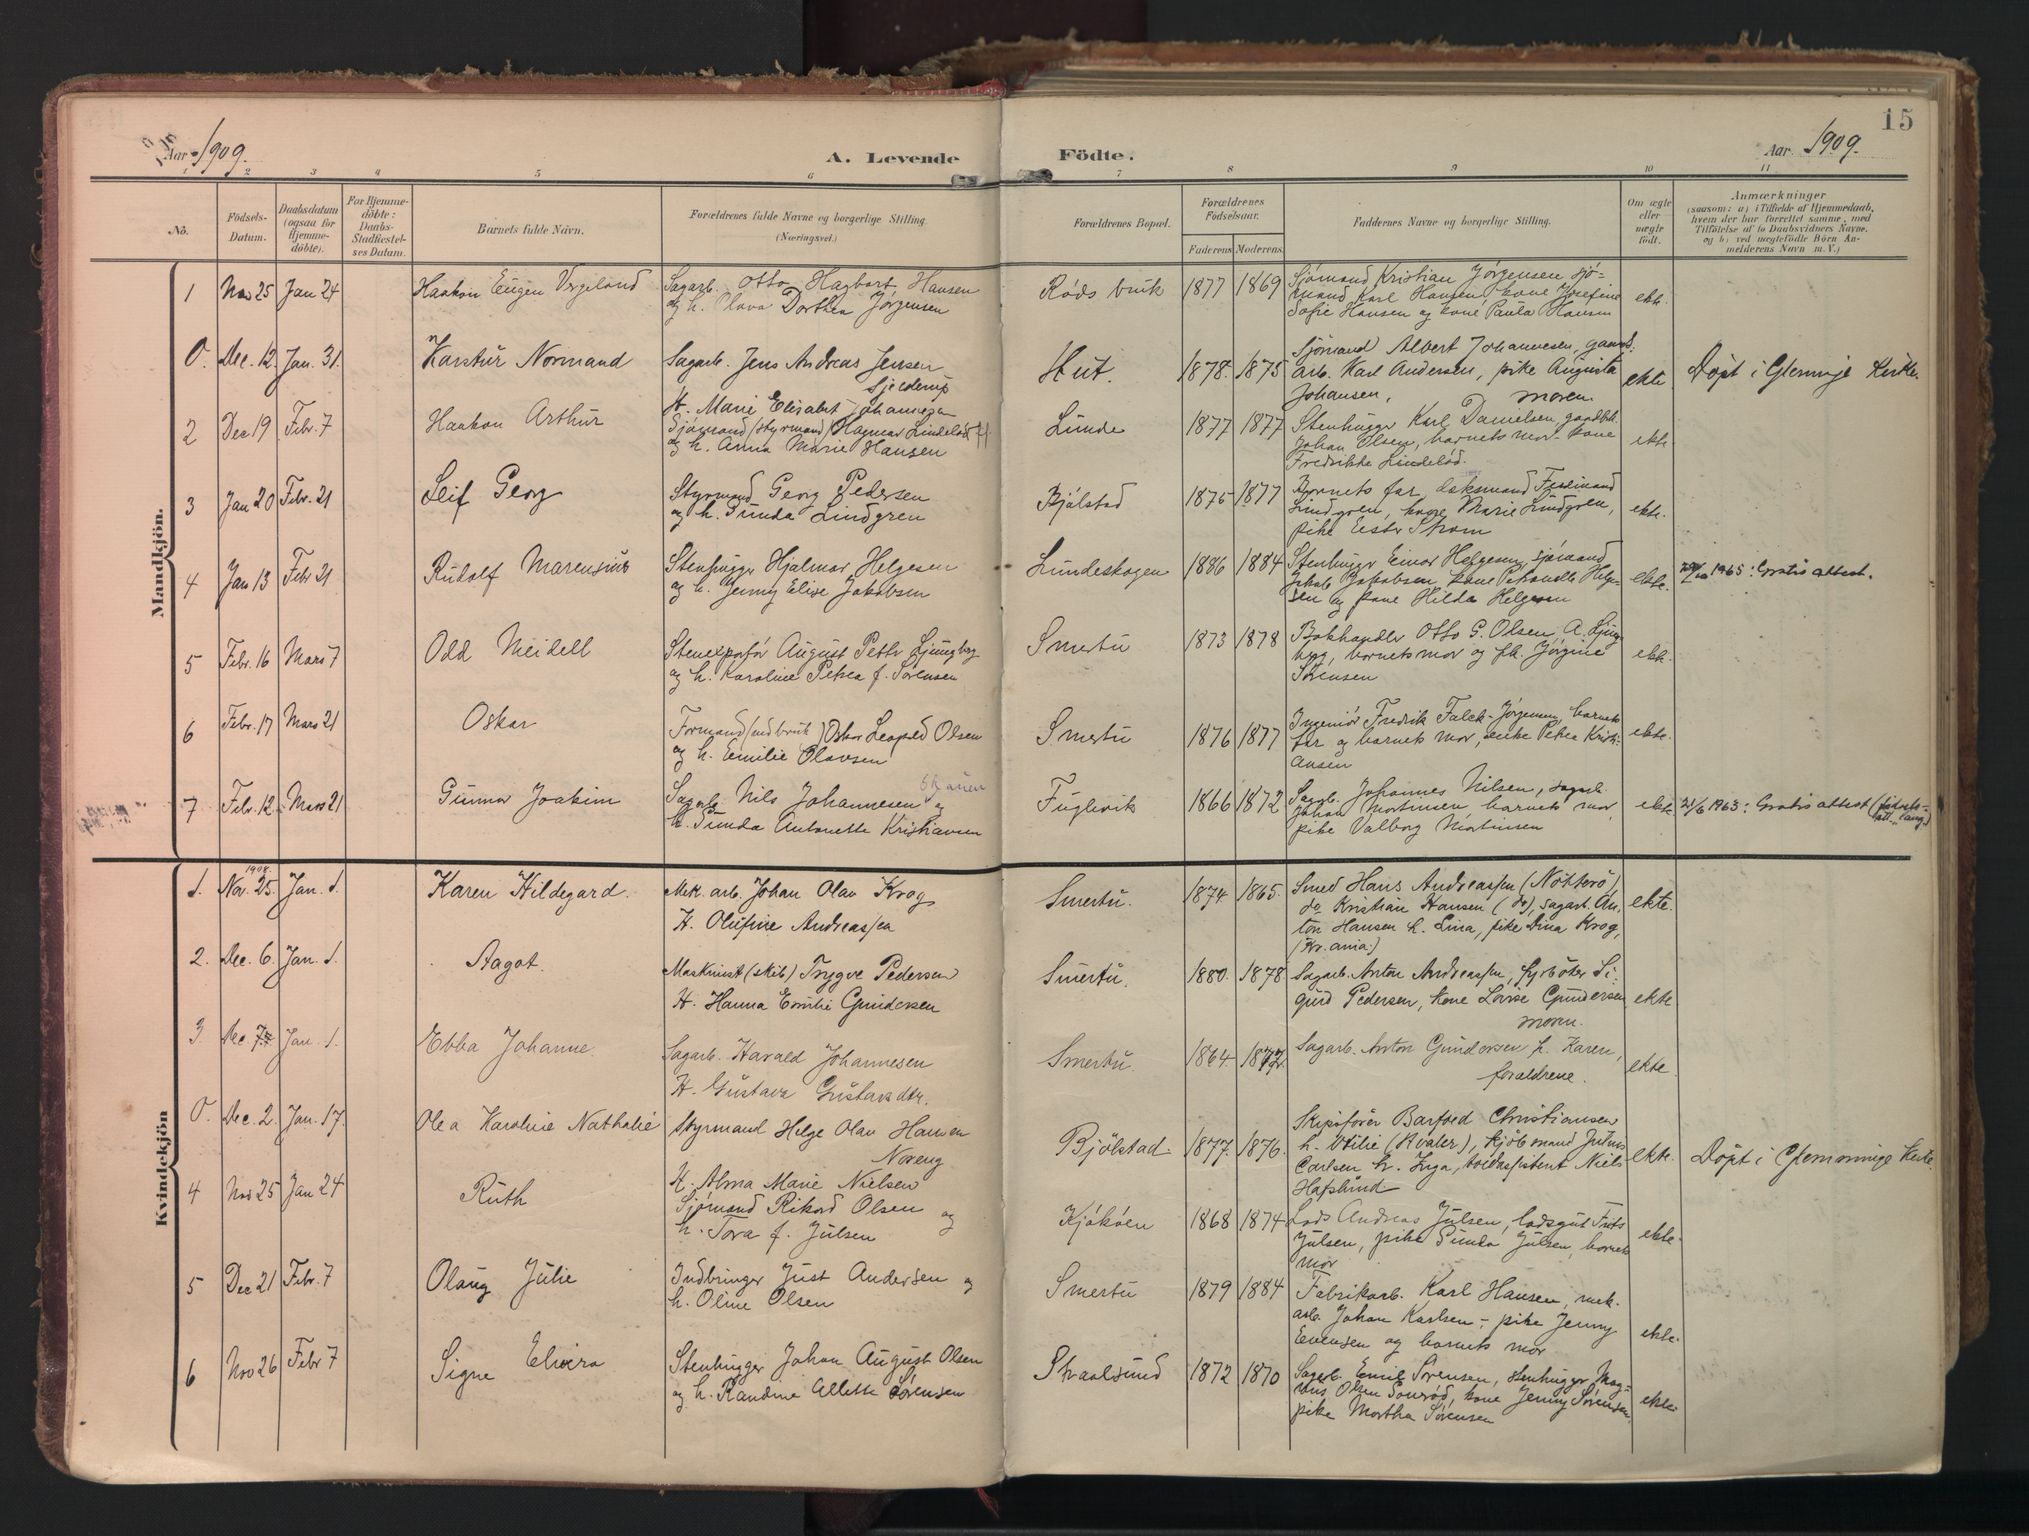 15
Aar 1909.
A. Levende Födte.
Aar 1909.
1 2 3 4 5 6 7 8 9 10 11
No.
Födsels-Datum.
Daabsdatum (ogsaa for Hjemme-döbte).
For Hjemme-döbte: Daabs-Stadfæstel-ses Datum.
Barnets fulde Navn.
Forældrenes fulde Navne og borgerlige Stilling. (Næringsvei.)
Forældrenes Bopæl.
Forældrenes Födselsaar.
Faderens Moderens
Faddernes Navne og borgerlige Stilling.
Om ægte eller uægte födt.
Anmærkninger
(saasom: a) i Tilfælde af Hjemmedaab,
hvem der har forrettet samme, med
Tilföielse af to Daabsvidners Navne,
og b) ved uægtefödte Börn An-
melderens Navn m. V.)
Mandkjön.
1 Nov 25 Jan 24 Haakon Eugen Vergeland
Sagarb. Otto Hagbart Hansen
og h. Olava Dorthea Jørgensen
Røds bruk 1877 1869
Sjømand Kristian Jørgensen sjø-
mand Karl Hansen, kone Josefine
Sofie Hansen og kone Paula Hansen
ekte.
0. Dec. 12. Jan. 31. Karstur Normand
Sagarb. Jens Andreas Jensen
Gjelderup
H. Marie Elisabet Johannesen
Hut. 1878. 1875
Sjømand Albert Johannesen, gaards.
arb. Karl Andersen, pike Augusta
Johansen, moren
ekte
Døpt i Glemminge Kirke.
2 Dec 19 Febr. 7 Haakon Arthur
Sjømand (styrmand) Hagmar Lindelød
og h. Anna Marie Hansen
Lunde 1877 1877
Stenhugger Karl Danielsen, gaardbr.
Johan Olsen, barnets mor - kone
Fredrikke Lindelød.
ekte
3 Jan 20 Febr. 21 Leif Georg
Styrmand Georg Pedersen
og h. Gunda Lindgren
Bjølstad 1875 1877
Barnets far, dæksmand Ferdinand
Lindgren, kone Marie Lindgren,
pike Ester Strøm
ekte.
4 Jan 13 Febr 21 Rudolf Marensius
Stenhugger Hjalmar Helgesen
og h. Jenny Elise Jakobsen
Lundeskogen 1886 1884
Stenhugger Einar Helgesen, sjømand
Jakob Jakobsen, kone Petrandle Helge-
sen og kone Hilda Helgesen
ekte.
1965: Gratis attest.
5 Febr. 16 Mars 7 Odd Meidell
Stenexportør August Peter Ljungberg
og h. Karoline Petrea f. Sørensen
Smertu 1873 1878
Bokhandler Otto G. Olsen, A. Ljung-
berg, barnets mor og frk. Jørgine
Sørensen
ekte.
6 Febr. 17 Mars 21 Oskar
Formand (ved bruk) Oskar Leopold Olsen
og h. Emilie Olavsen
Smertu 1876 1877
Ingeniør Fredrik Falck-Jørgensen, barnets
far og barnets mor, enke Petrea Kristi-
ansen
ekte.
7 Febr. 12 Mars 21 Gunnar Joakim
Sagarb. Nils Johannesen og
h. Gunda Antonette Kristiansen
Fuglevik 1866 1872
Sagb. Johannes Nilsen, sagarb.
Johan Mortinsen barnets mor,
pike Valborg Mortinsen
ekte
21/6 1963: Gratis attest
Kvindekjön
1. 1908 Nov. 25. Jan. 1. Karen Hildegard.
Mek. arb. Johan Olav Krog
H. Olufine Andreassen
Smertu. 1874 1865.
Smed Hans Andreassen (Nøtterø)
do Kristian Hansen (do), sagarb. An-
ton Hansen h. Lina, pike Dina Krog,
(Kr.ania.)
ekte.
2. Dec. 6. Jan. 1. Aagot.
Maskinist (skib) Trygve Pedersen
H. Hanna Emilie Gundersen
Smertu. 1880. 1878.
Sagarb. Anton Andreassen, fyrbøter Si-
gurd Pedersen, kone Lovise Gundersen
moren.
ekte
3. Dec 7 Jan. 1. Ebba Johanne.
Sagarb. Harald Johannesen
H. Gustava Gustavsdtr.
Smertu. 1864. 1877
Sagarb. Anton Gundersen h. Karen,
foraldrene.
ekte.
0. Dec. 2. Jan. 17. Olea Karoline Nathalie
Styrmand Helge Olav Hansen
Noreng
H. Alma Marie Nielsen
Bjølstad 1877. 1876.
Skipsfører Barfoed Christiansen
h. Otilie (Hvaler), kjøbmand Julius
Carlsen h. Inga, toldassistent Niels
Hafslund
ekte.
Døpt i Glemminge Kirke
4 Nov 25 Jan 24 Ruth
Sjømand Rikard Olsen og
h. Tora f. Julsen
Kjøkøen 1868 1874
Lods Andreas Julsen, lodsgut Frits
Julsen, pike Gunda Julsen, barnets
mor
ekte.
5 Dec 21 Febr. 7 Olaug Julie
Indbringer Just Andersen og
h. Oline Olsen
Smertu 1879 1884
Fabrikarb. Karl Hansen, mek.
arb. Johan Karlsen - pike Jenny
Evensen og barnets mor
ekte.
6 Nov 26 Febr 7 Signe Elvira
Stenhugger Johan August Olsen
og h. Randine Allette Sørensen
Straalsund 1872 1870
Sagarb. Emil Sørensen, stenhugger Mag-
nus Olsen, kone Jenny Sørensen,
pike Martha Sørensen
ekte.